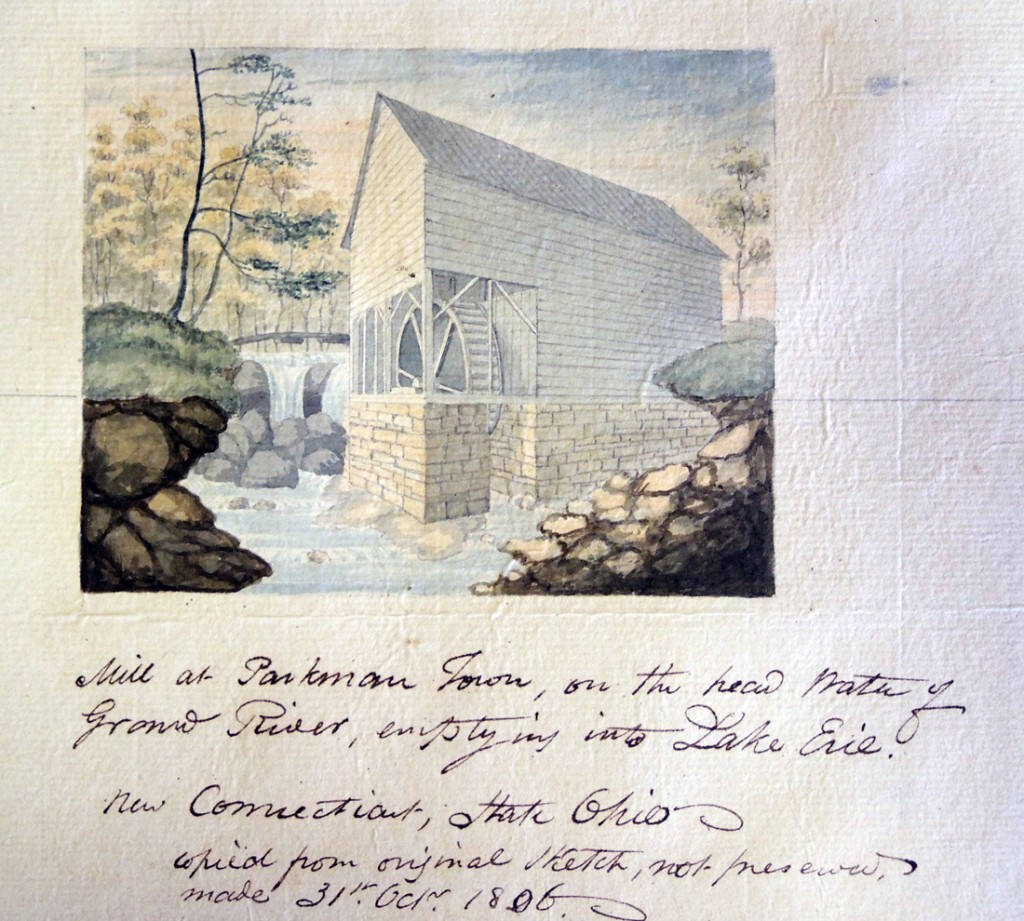 Mill at Parkman Town, on the head Water of
Grand River, emptying into Lake Erie.
New Connecticut, State Ohio
copied from original Sketch, not preserved,
made 31st. Octr. 1806.